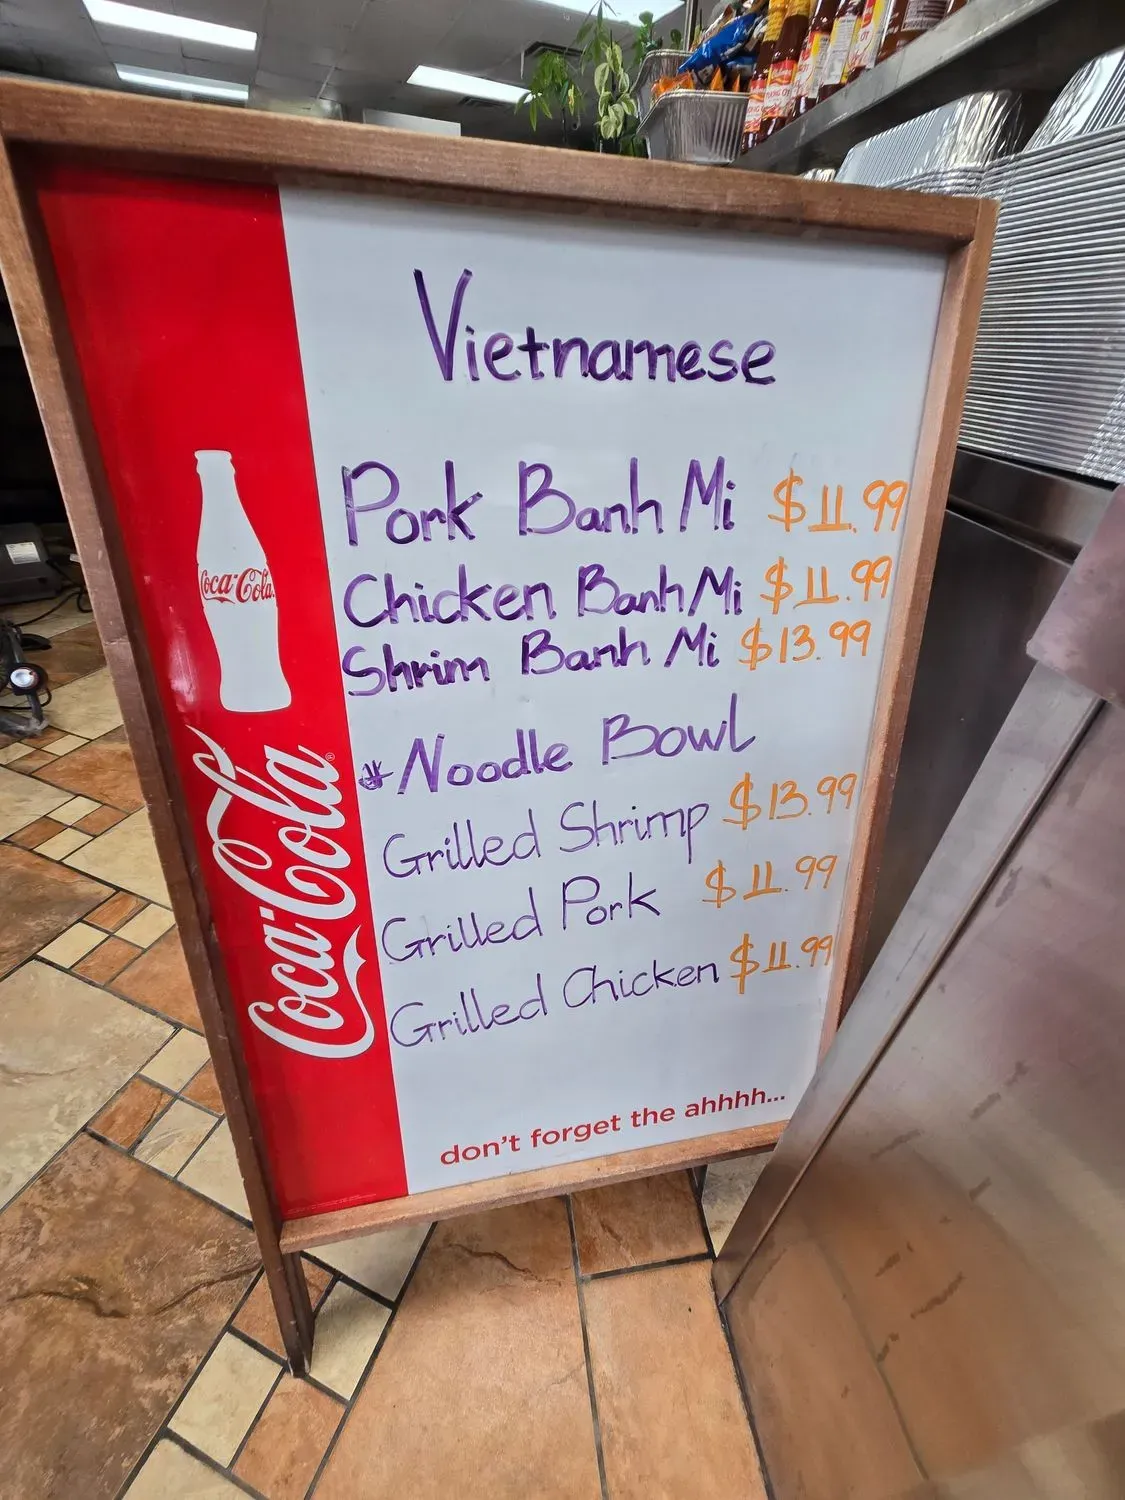 Vietnamese
Pork Banh Mi $11.99
Chicken Banh Mi $11.99
Shrim Banh Mi $13.99
Noodle Bowl
Grilled Shrimp $13.99
Grilled Pork $11.99
Grilled Chicken $11.99
don't forget the ahhhh...
Coca-Cola
Coca-Cola®